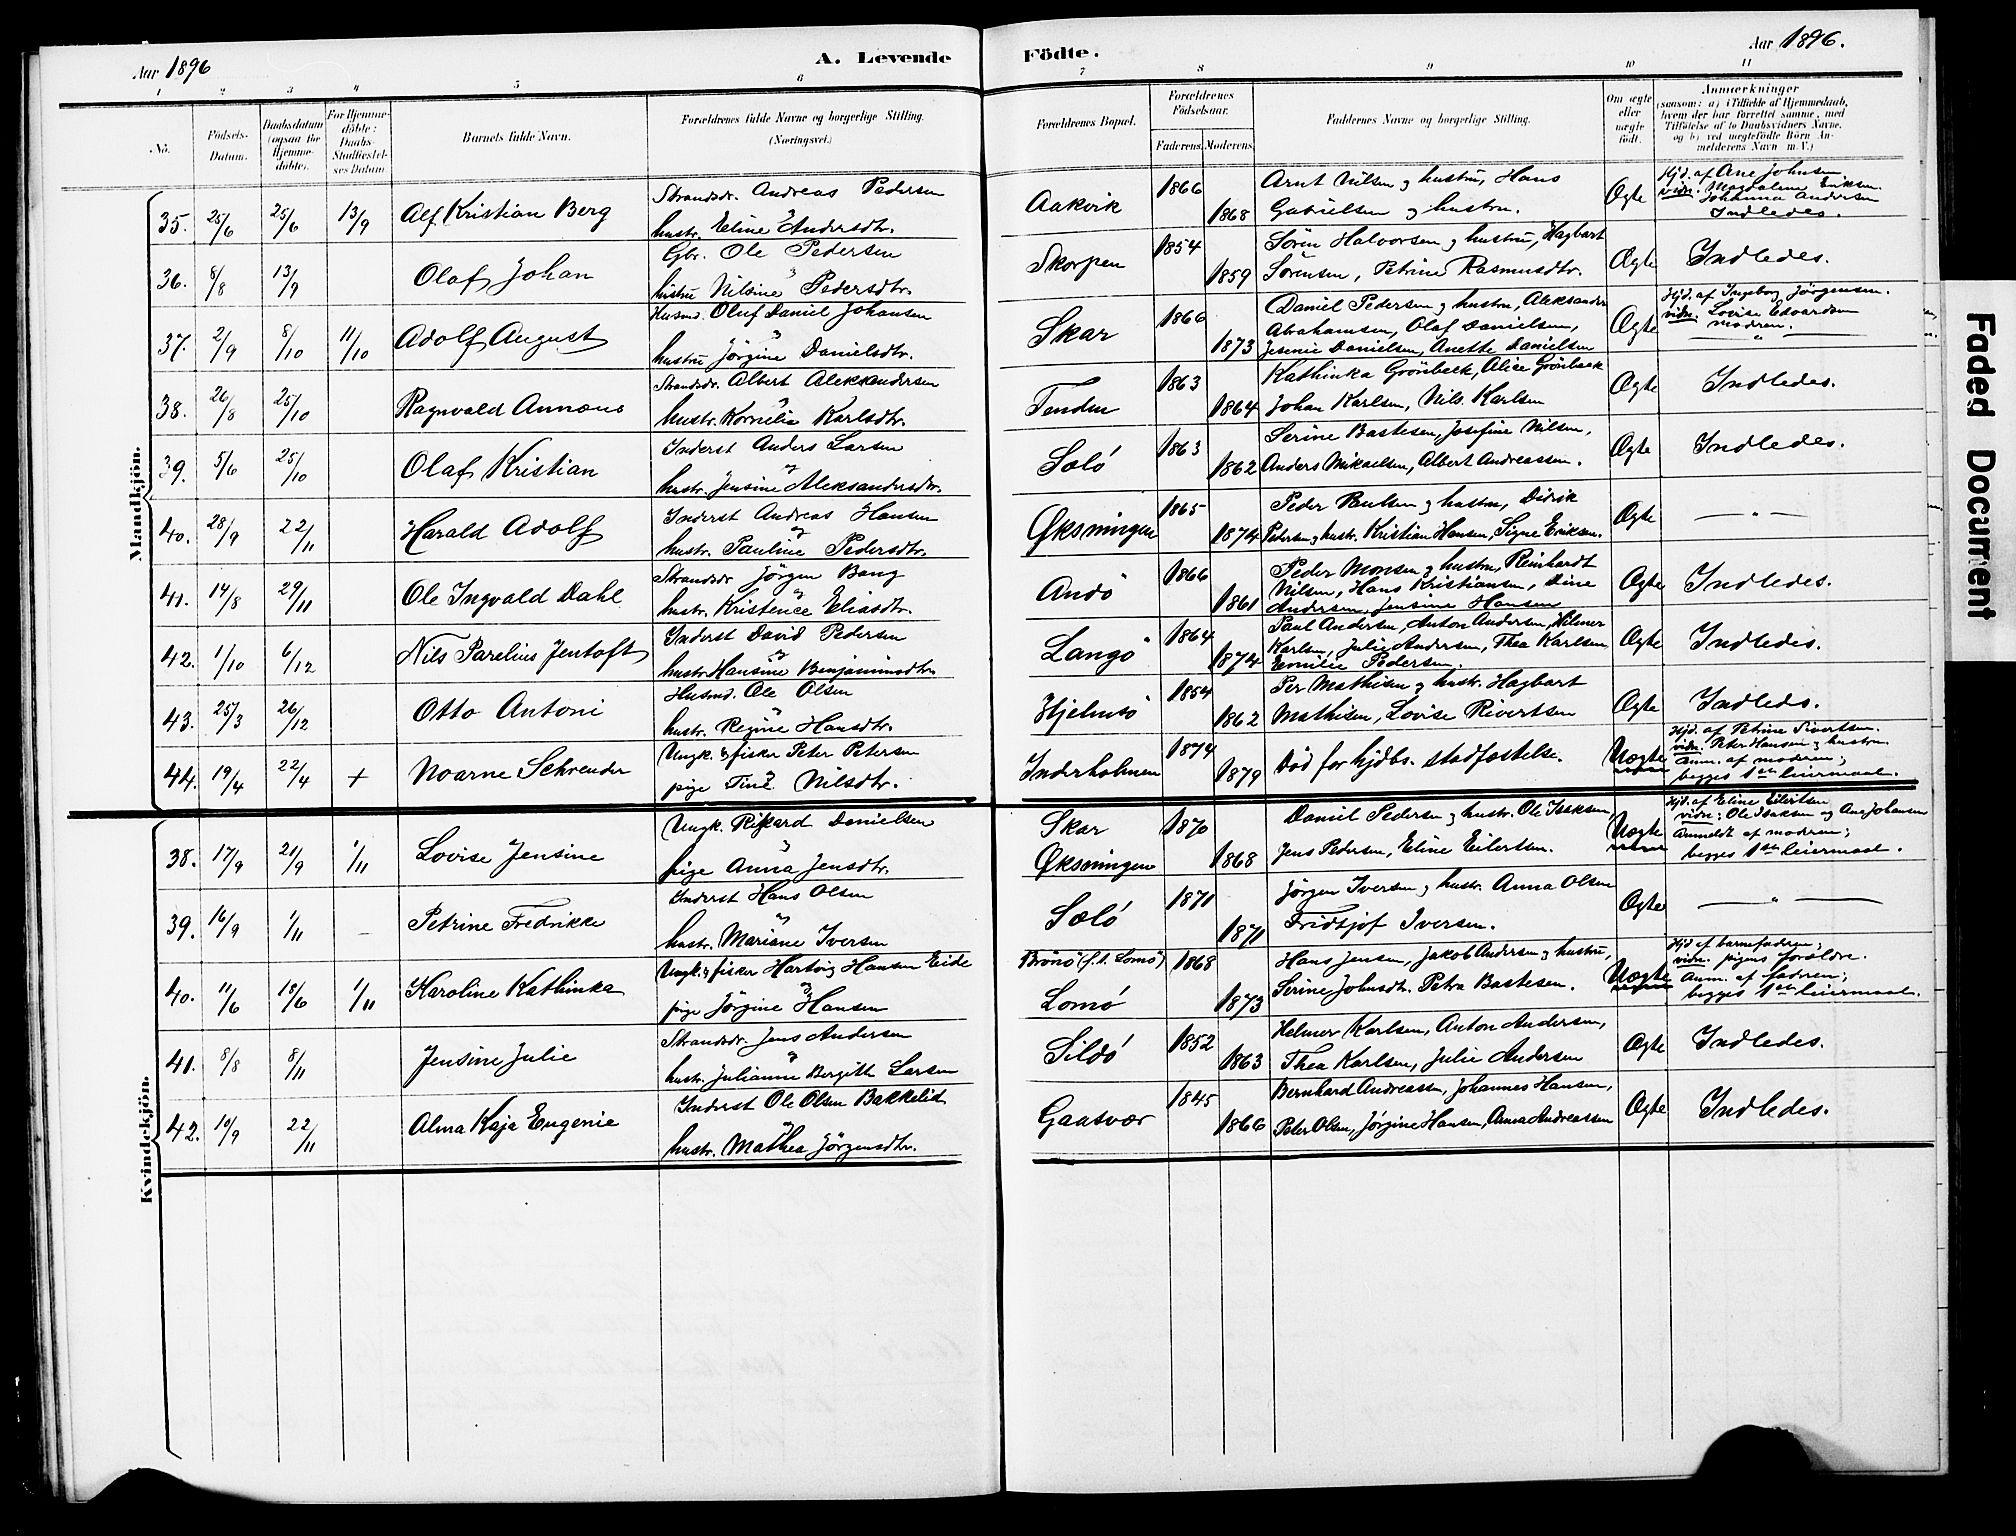 Aar 1896
A. Levende Födte.
Aar 1896.
1 2 3 4 5 6 7 8 9 10 11
No.
Födsels-Datum.
Daabsdatum (ogsaa for Hjemme-döbte).
For Hjemme-döbte: Daabs-Stadfæstel-ses Datum
Barnets fulde Navn.
Forældrenes fulde Navne og borgerlige Stilling.
(Næringsvei.)
Forældrenes Bopæl.
Forældrenes Födselsaar.
Faderens. Moderens.
Faddernes Navne og borgerlige Stilling.
Om ægte eller uægte födt.
Anmærkninger
(saasom: a) i Tilfælde af Hjemmedaab, hvem der har forrettet samme, med Tilföielse af to Daabsvidners Navne, og b) ved uægtefödte Börn An-melderens Navn m. V.)
Mandkjön.
35. 25/6 25/6 13/9 Alf Kristian Berg
Strandsdr. Andreas Pedersen
hustr. Eline Andersdtr.
Aakvik 1866 1868
Arnt Nilsen og hustru, Hans
Gabrielsen og hustru.
Ægte
Hjd. af Ane Johnsen.
vidn. Magdalena Eriksen
Johanna Andersen
Indledes.
36. 8/8 13/9 Olaf Johan
Gbr. Ole Pedersen
hustru Nilsine Pedersdtr.
Skorpen 1854 1859
Sören Halvorsen og hustru, Hagbart
Sörensen, Petrine Rasmusdtr.
Ægte Indledes.
37. 2/9 8/10 11/10 Adolf August
Husmd. Oluf Daniel Johansen
hustru Jörgine Danielsdtr.
Skar 1866 1873
Daniel Pedersen og hustru, Aleksander
Abrahamsen, Olaf Danielsen,
Jesenie Danielsen, Anette Danielsen
Ægte
Hjd. af Ingeborg Jörgensen.
vidn. Lovise Edvardsen
modren.
— " —
38. 26/8 25/10 Ragnvald Annæus
Strandsdr. Albert Alekkandersen
og
hustr. Kornelia Karlsdtr.
Tenden 1863 1864
Kathinka Grönbeck, Alice Grönbeck
Johan Karlsen, Nils Karlsen
Ægte Indledes.
39. 5/6 25/10 Olaf Kristian
Inderst Anders Larsen
og
hustr. Jensine Aleksandersdtr.
Solö 1863 1862
Serine Bastesen, Josefine Nilsen,
Anders Mikaelsen, Albert Andreassen.
Ægte Indledes.
40. 28/9 22/11 Harald Adolf
Inderst Andreas Hansen
og
hustr. Pauline Pedersdtr.
Øksningen 1865 1874
Peder Paulsen og hustru, Didrik
Pedersen og hustr. Kristian Hansen, Signe Eriksen.
Ægte — " —
41. 14/8 29/11 Ole Ingvald Dahl
Strandsdr Jörgen Bang
og
hustr. Kristence Eliasdtr.
Andö 1866 1861
Peder Monsen og hustru, Reinhardt
Nilsen, Hans Kristiansen, Dina
Andersen, Jensine Hansen
Ægte Indledes.
42. 1/10 6/12 Nils Parelius Jentoft
Inderst David Pedersen
og
hustr. Hansine Benjaminsdtr.
Langö 1864 1874
Paul Andersen, Anton Andersen, Hilmer
Karlsen, Julie Andersen, Thea Karlsen
Emilie Pedersen.
Ægte Indledes.
43. 25/3 26/12 Otto Antoni
Husmd. Ole Olsen
og
hustr. Regine Hansdtr.
Hjelmsö 1854 1862
Per Mathisen og hustr. Hagbart
Mathisen, Lovise Rivertsen
Ægte Indleds.
44. 19/4 22/4 + Noarne Schrender
Ungk. og fisker Peter Petersen
pige Tine Nilsdtr.
Inderholmen 1874 1879
Död for hjdbs. stadfæstelse.
Uægte
Hjd. af Petrine Sivertsen.
vidn. Peter Hansen og hustru
Anm. af moderen;
begges 1ste leiermaal.
Kvindekjön.
38. 17/9 21/9 1/11 Lovise Jensine
Ungk. Rikard Danielsen
og
pige Anna Jensdtr.
Skar 1870
Øksningen 1868
Daniel Pedersen og hustr. Ole Isaksen
Jens Pedersen, Eline Eilertsen.
Uægte
Hjd. af Eline Eilertsen
vidn: Ole Isaksen og Ane Johansen
Anmeldt af moderen;
begges 1ste leiermaal.
39. 16/9 1/11 – Petrine Fredrikke
Inderst Hans Olsen
og
hustr. Mariane Iversen
Solö 1871 1871
Jörgen Iversen og hustr. Anna Olsen
Fridtjof Iversen.
Ægte — " —
40. 11/6 18/6 1/11 Karoline Kathinka
Ungk. og fisker Hartvig Hansen Eide
og
pige Jörgine Hansen
Brönö (f. t. Lomö) 1868
Lomö 1873
Hans Jensen, Jakob Andersen og hustru,
Serine Johnsdtr. Petra Bastesen.
Uægte
Hjd af barnefaderen;
vidn. pigens forældre.
Anm. af fadren;
begges 1ste leiermaal.
41. 8/8 8/11 Jensine Julie
Strandsdr. Jens Andersen
og
hustr. Julianne Bergitte Larsen
Sildö 1852 1863
Helmer Karlsen, Anton Andersen,
Thea Karlsen, Julie Andersen
Ægte Indledes.
42. 10/9 22/11 Alma Kaja Eugenie
Inderst Ole Olsen Bakkelid
og
hustr. Mathea Jörgensdtr.
Gaasvær 1845 1866
Bernhard Andreassen, Johannes Hansen,
Peter Olsen, Jörgine Hansen, Anna Andreassen
Ægte Indledes.
Faded Document